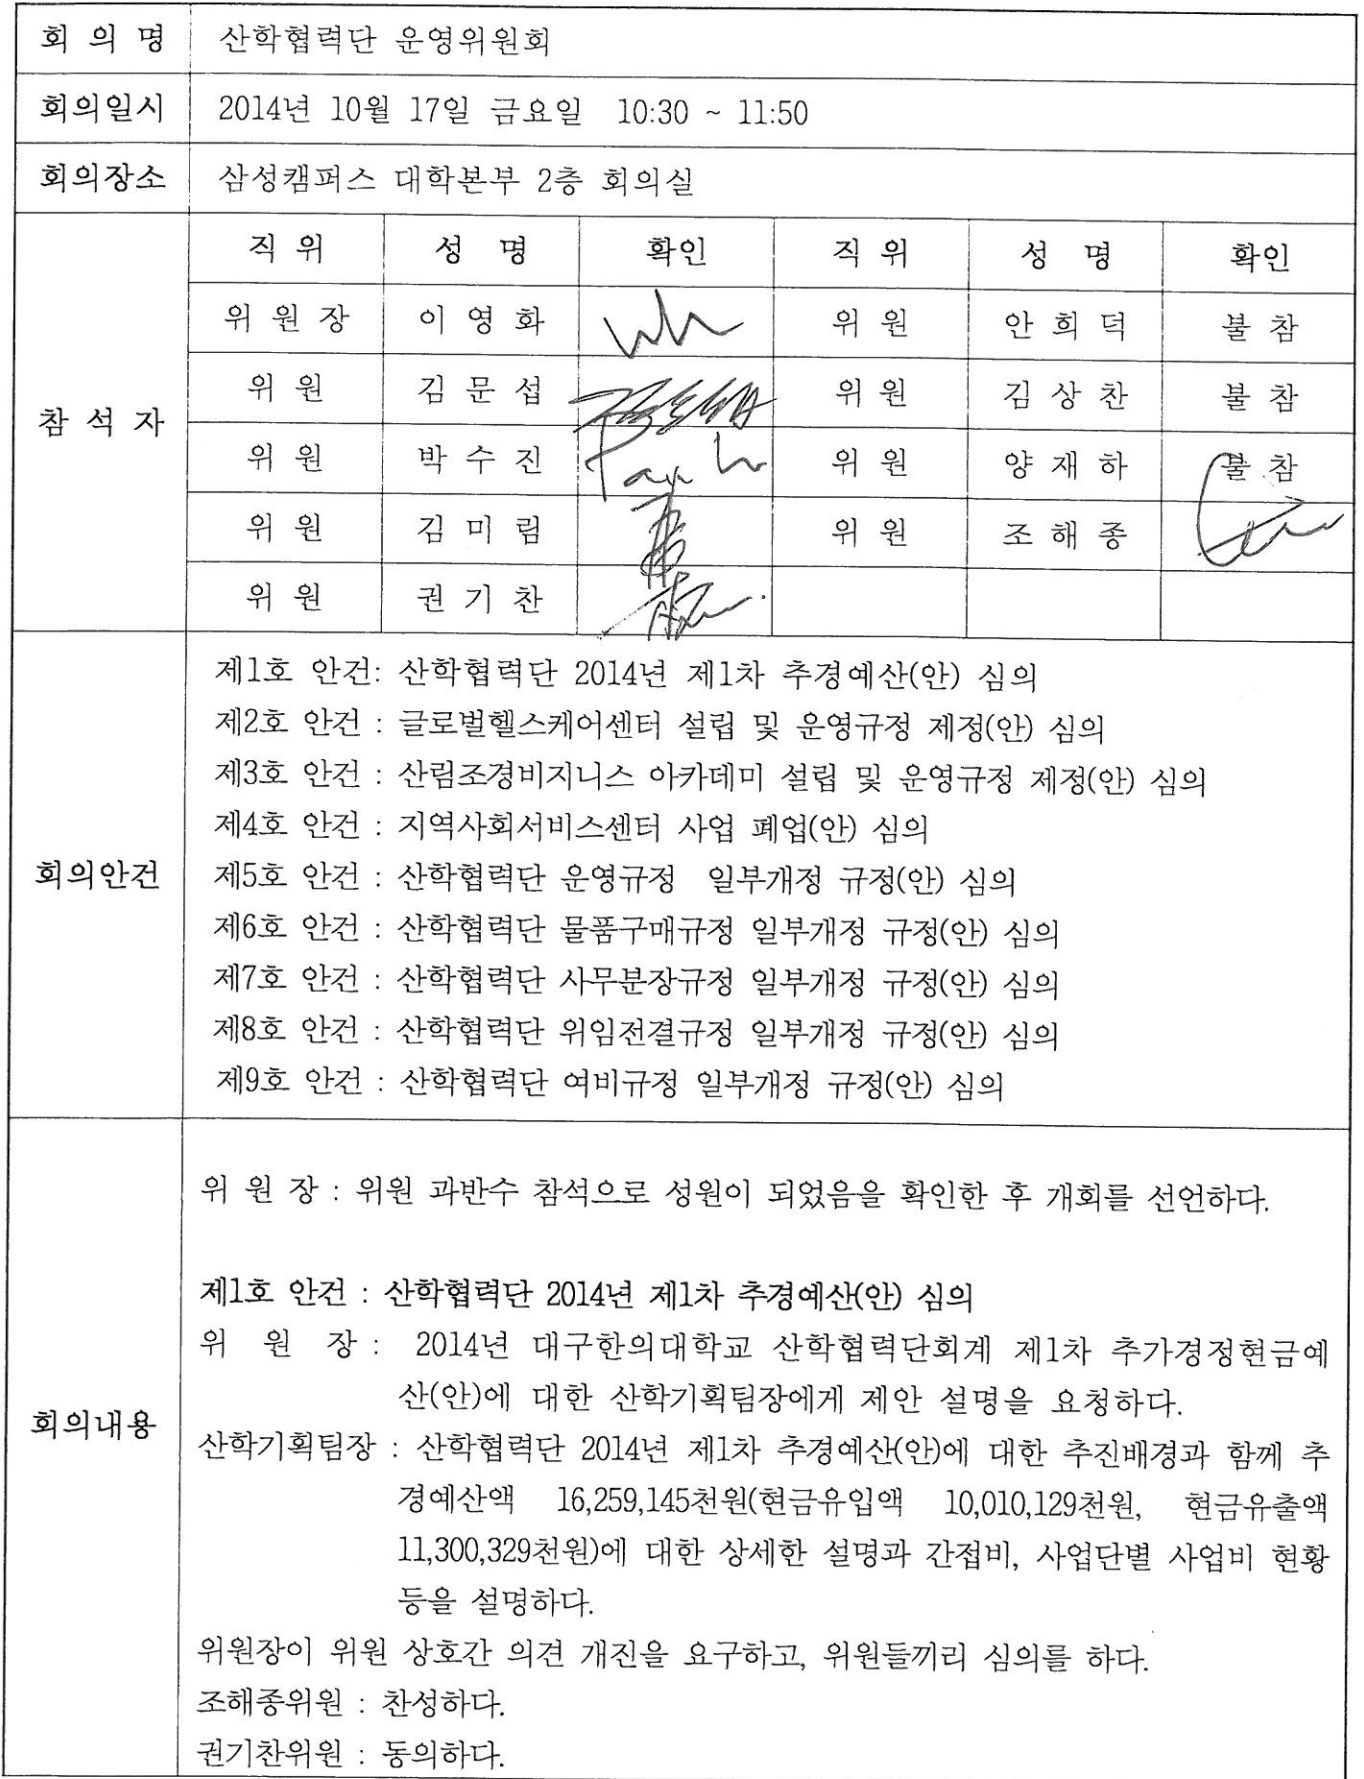 회 의 명 산학협력단 운영위원회
회의일시 2014년 10월 17일 금요일 10:30 ~ 11:50
회의장소 삼성캠퍼스 대학본부 2층 회의실
참 석 자
직 위 성 명 확인 직 위 성 명 확인
위 원 장 이 영 화 위 원 안 희 덕 불 참
위 원 김 문 섭 위 원 김 상 찬 불 참
위 원 박 수 진 위 원 양 재 하 불 참
위 원 김 미 림 위 원 조 해 종
위 원 권 기 찬
회의안건
제1호 안건: 산학협력단 2014년 제1차 추경예산(안) 심의
제2호 안건 : 글로벌헬스케어센터 설립 및 운영규정 제정(안) 심의
제3호 안건 : 산림조경비지니스 아카데미 설립 및 운영규정 제정(안) 심의
제4호 안건 : 지역사회서비스센터 사업 폐업(안) 심의
제5호 안건 : 산학협력단 운영규정 일부개정 규정(안) 심의
제6호 안건 : 산학협력단 물품구매규정 일부개정 규정(안) 심의
제7호 안건 : 산학협력단 사무분장규정 일부개정 규정(안) 심의
제8호 안건 : 산학협력단 위임전결규정 일부개정 규정(안) 심의
제9호 안건 : 산학협력단 여비규정 일부개정 규정(안) 심의
회의내용
위 원 장 : 위원 과반수 참석으로 성원이 되었음을 확인한 후 개회를 선언하다.
제1호 안건 : 산학협력단 2014년 제1차 추경예산(안) 심의
위 원 장 : 2014년 대구한의대학교 산학협력단회계 제1차 추가경정현금예
산(안)에 대한 산학기획팀장에게 제안 설명을 요청하다.
산학기획팀장 : 산학협력단 2014년 제1차 추경예산(안)에 대한 추진배경과 함께 추
경예산액 16,259,145천원(현금유입액 10,010,129천원, 현금유출액
11,300,329천원)에 대한 상세한 설명과 간접비, 사업단별 사업비 현황
등을 설명하다.
위원장이 위원 상호간 의견 개진을 요구하고, 위원들끼리 심의를 하다.
조해종위원 : 찬성하다.
권기찬위원 : 동의하다.